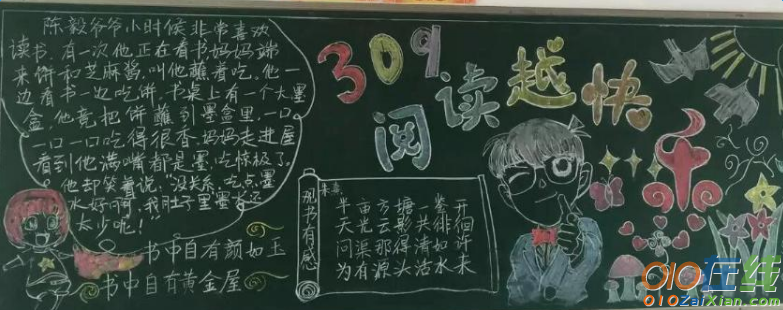 陈毅爷爷小时候非常喜欢
读书,有一次他正在看书妈妈端
来饼和芝麻酱,叫他蘸着吃。他一
边看书一边吃饼,书桌上有一个大墨
盒,他竟把饼蘸到墨盒里,一口
一口一口吃得很香,妈妈走进屋
看到他满嘴都是墨,吃惊极了。
他却笑着说:“没关系,吃点墨
水好啊,我肚子里墨水还
太少呢!”
书中自有颜如玉
书中自有黄金屋
309
阅读越快乐
观书有感
朱熹
半亩方塘一鉴开
天光云影共徘徊
问渠那得清如许
为有源头活水来
010在线
010ZaiXian.com